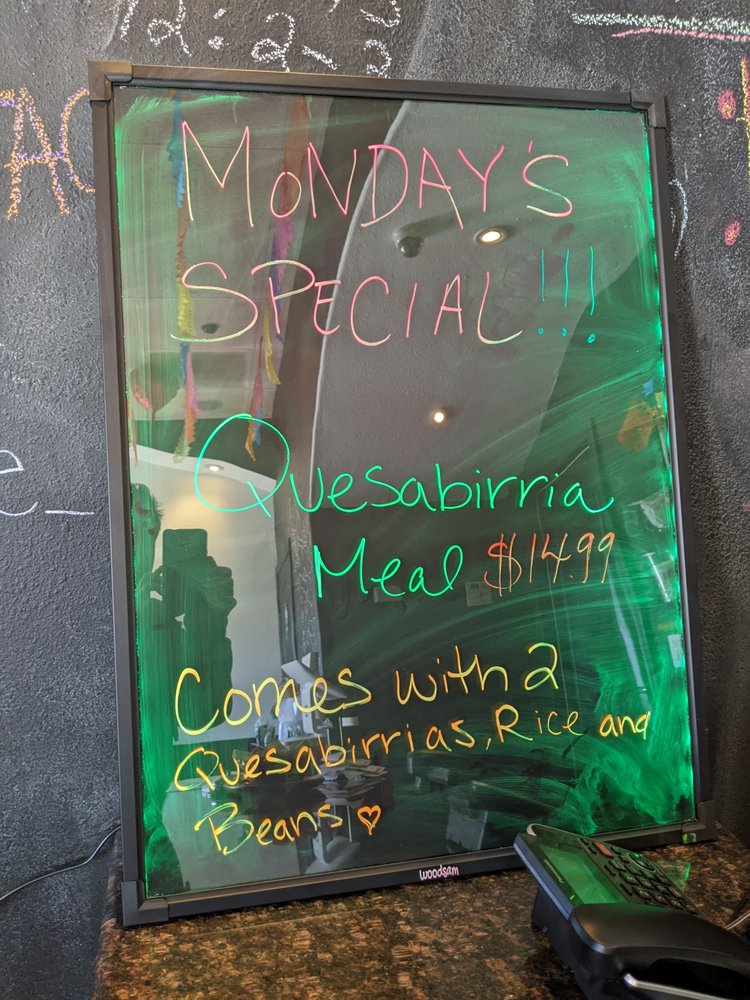 MONDAY'S
SPECIAL!!!
Quesabirria
Meal $14.99
Comes with 2
Quesabirrias, Rice and
Beans ♡
woodsam